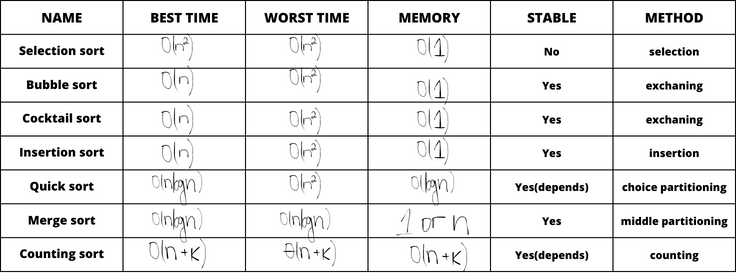 NAME BEST TIME WORST TIME MEMORY STABLE METHOD
Selection sort O(n²) O(n²) O(1) No selection
Bubble sort O(n) O(n²) O(1) Yes exchaning
Cocktail sort O(n) O(n²) O(1) Yes exchaning
Insertion sort O(n) O(n²) O(1) Yes insertion
Quick sort O(nlgn) O(n²) O(lgn) Yes(depends) choice partitioning
Merge sort O(nlgn) O(nlgn) 1 or n Yes middle partitioning
Counting sort O(n+k) θ(n+k) O(n+k) Yes(depends) counting